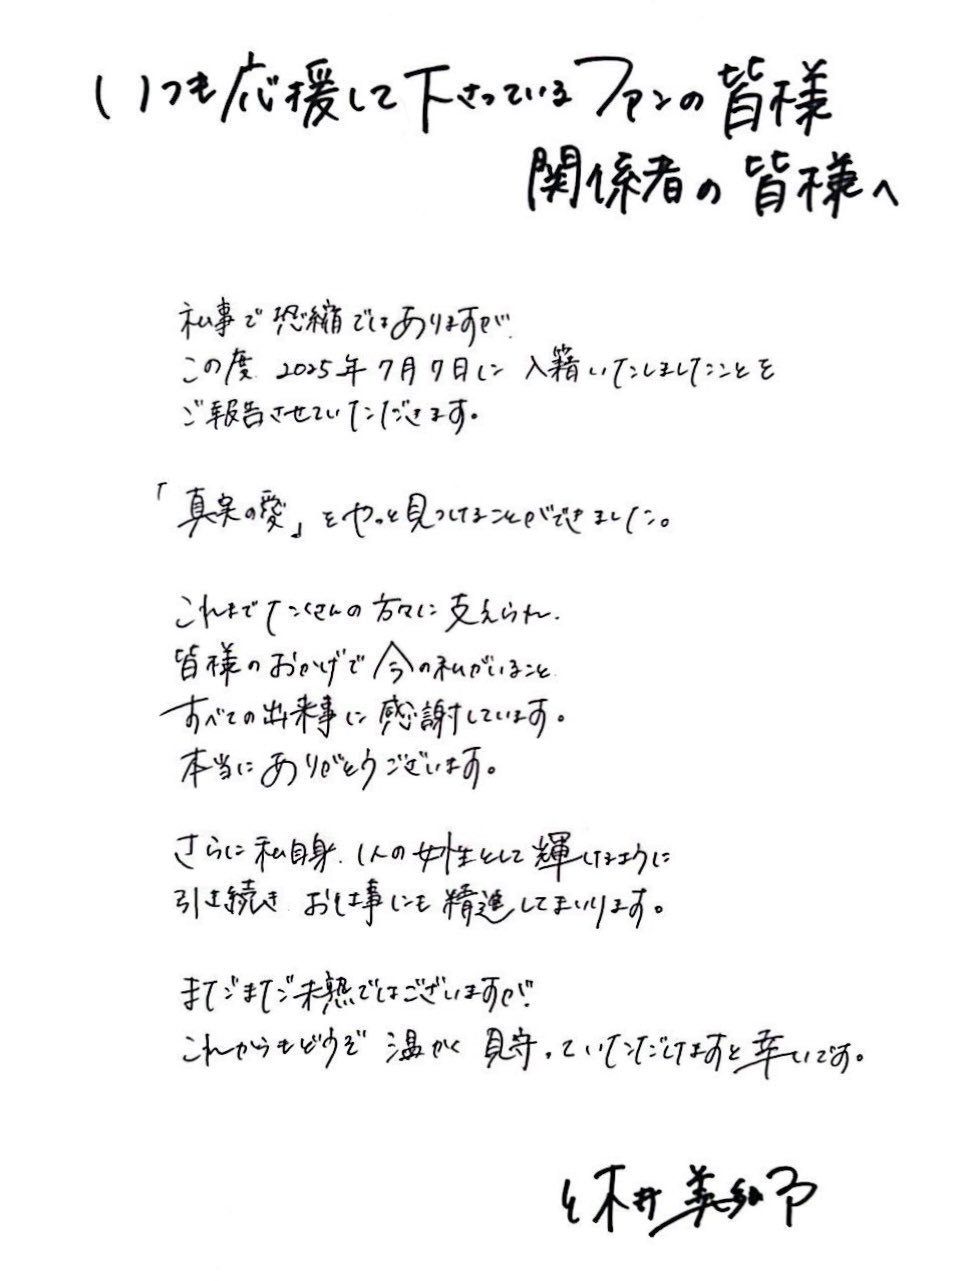 いつも応援して下さっているファンの皆様
関係者の皆様へ
私事で恐縮ではありますが
この度 2025年7月7日に 入籍いたしましたことを
ご報告させていただきます。
「真実の愛」をやっと見つけることができました。
これまでたくさんの方々に支えられ、
皆様のおかげで今の私がいること
すべての出来事に感謝しています。
本当にありがとうございます。
さらに私自身、1人の女性として輝けるように
引き続き お仕事にも精進してまいります。
まだまだ未熟ではございますが
これからもどうぞ 温かく 見守っていただけますと幸いです。